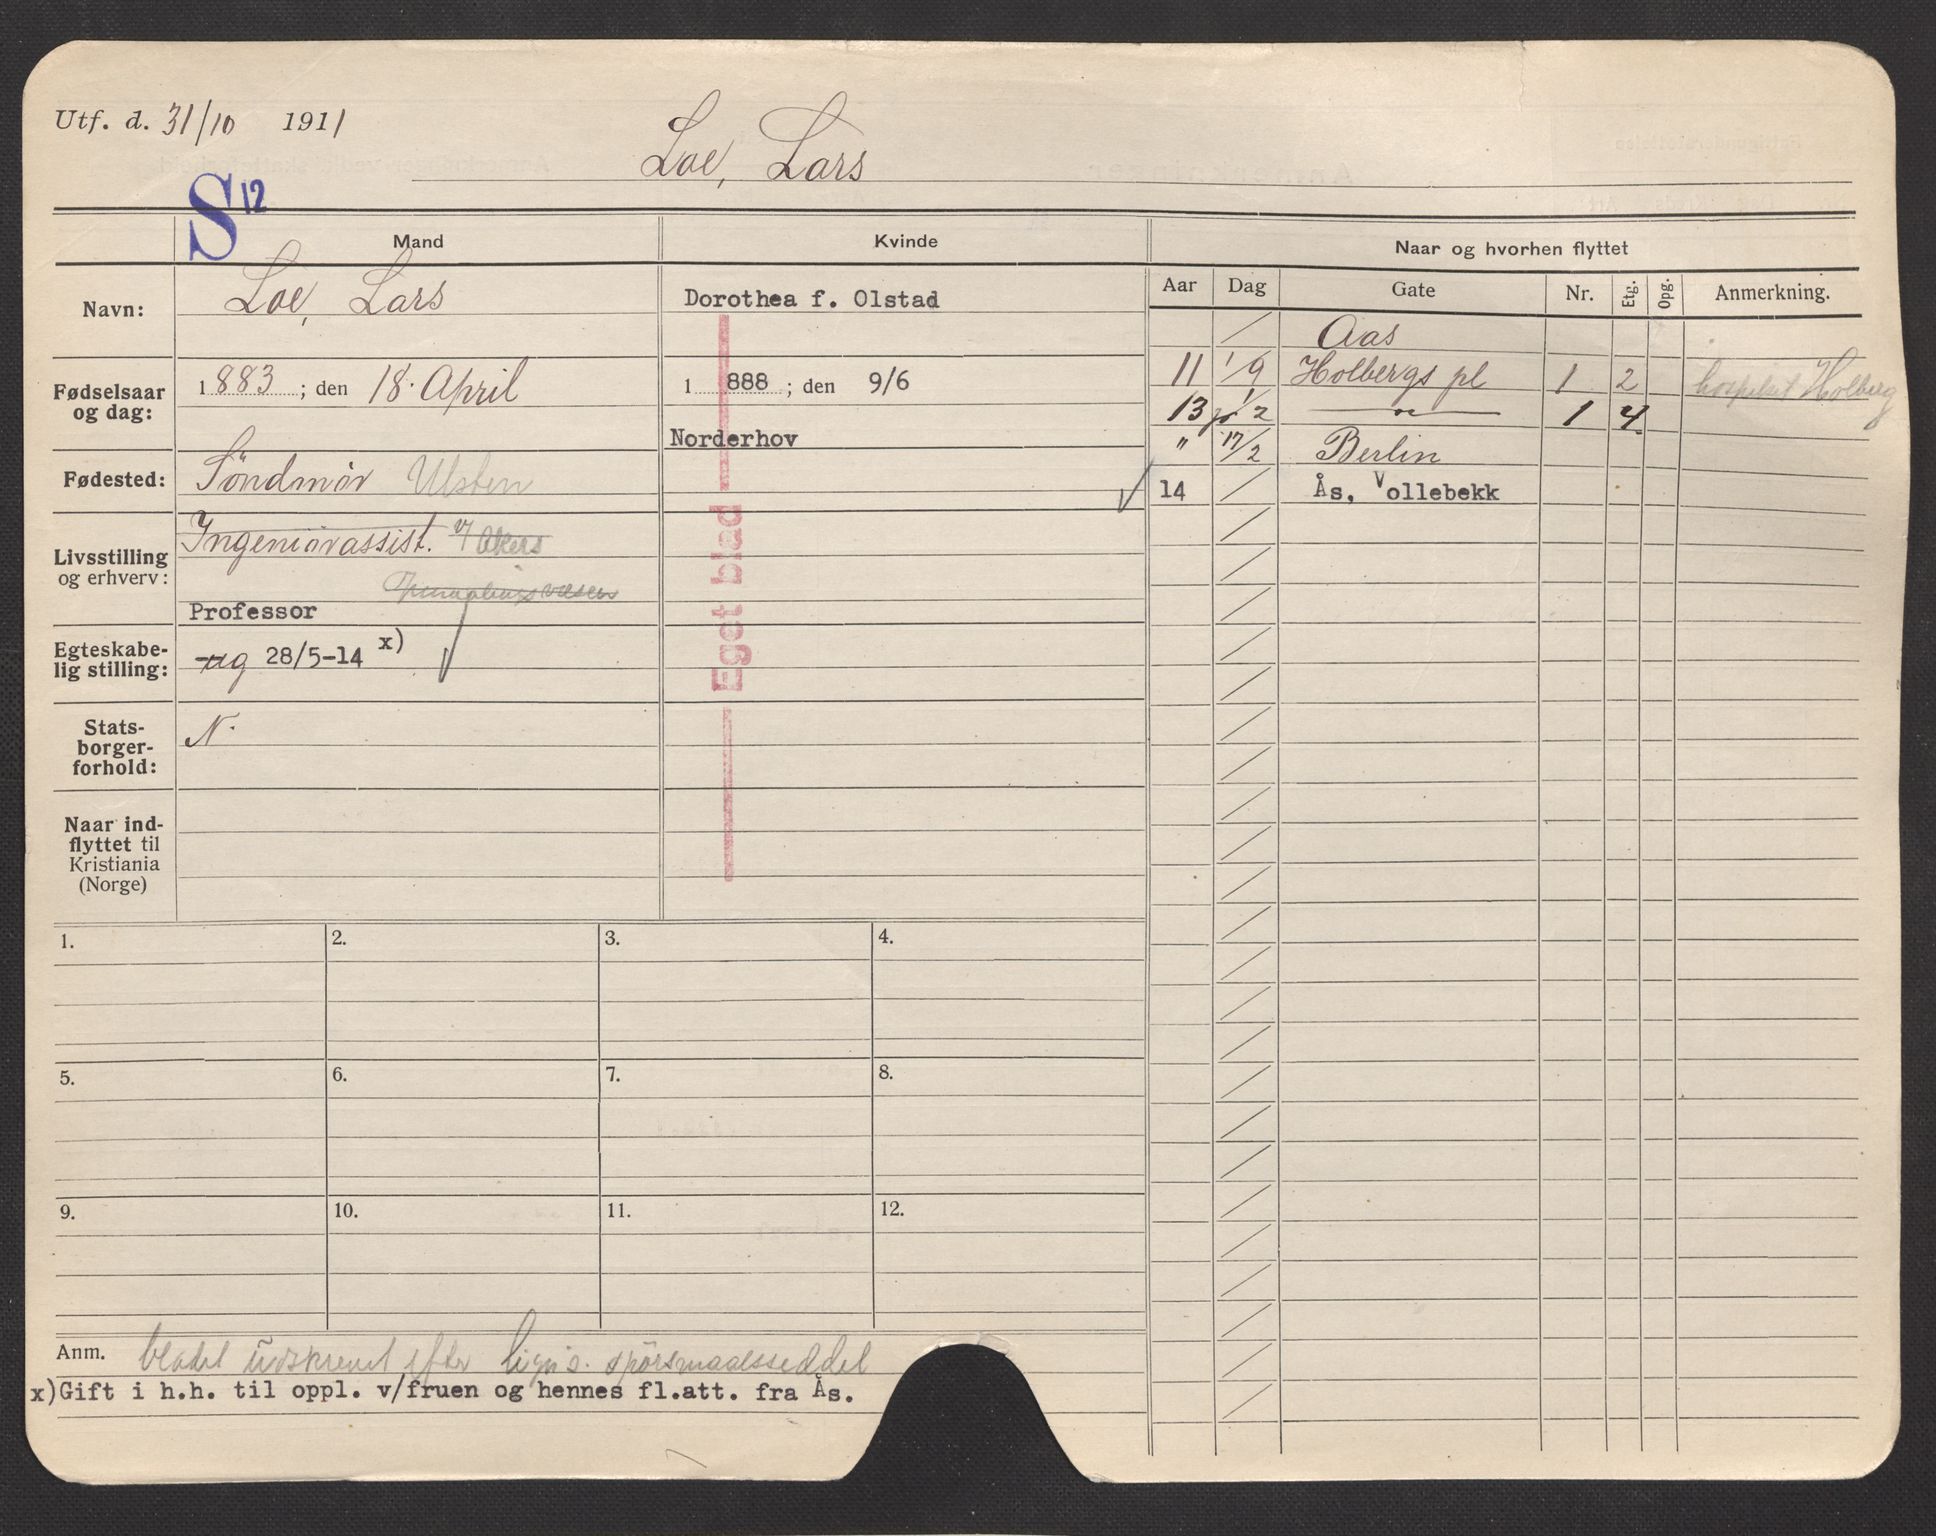 Utf. d. 31/10 1911
Loe, Lars
S 12
Mand
Kvinde
Naar og hvorhen flyttet
Navn:
Loe, Lars
Dorothea f. Olstad
Fødselsaar og dag:
1883; den 18. April
1 888 ; den 9/6
Fødested:
Söndmör Ulsten
Norderhov
Livsstilling og erhverv:
Ingeniörassist. v/ Akers
Opmaalingsvæsen
Professor
Egteskabelig stilling:
ug 28/5-14 x)
Statsborgerforhold:
N.
Naar indflyttet til Kristiania (Norge)
Eget blad
Aar Dag Gate Nr. Etg. Opg. Anmerkning.
/ Aas
11 1/9 Holbergs pl 1 2 hospitset Holberg
13 1/2 — " — 1 4
" 17/2 Berlin
14 / Ås, Vollebekk
1. 2. 3. 4.
5. 6. 7. 8.
9. 10. 11. 12.
Anm. bladet udskrevet efter spörsmaalsseddel
x) Gift i h.h. til oppl. v/fruen og hennes fl.att. fra Ås.